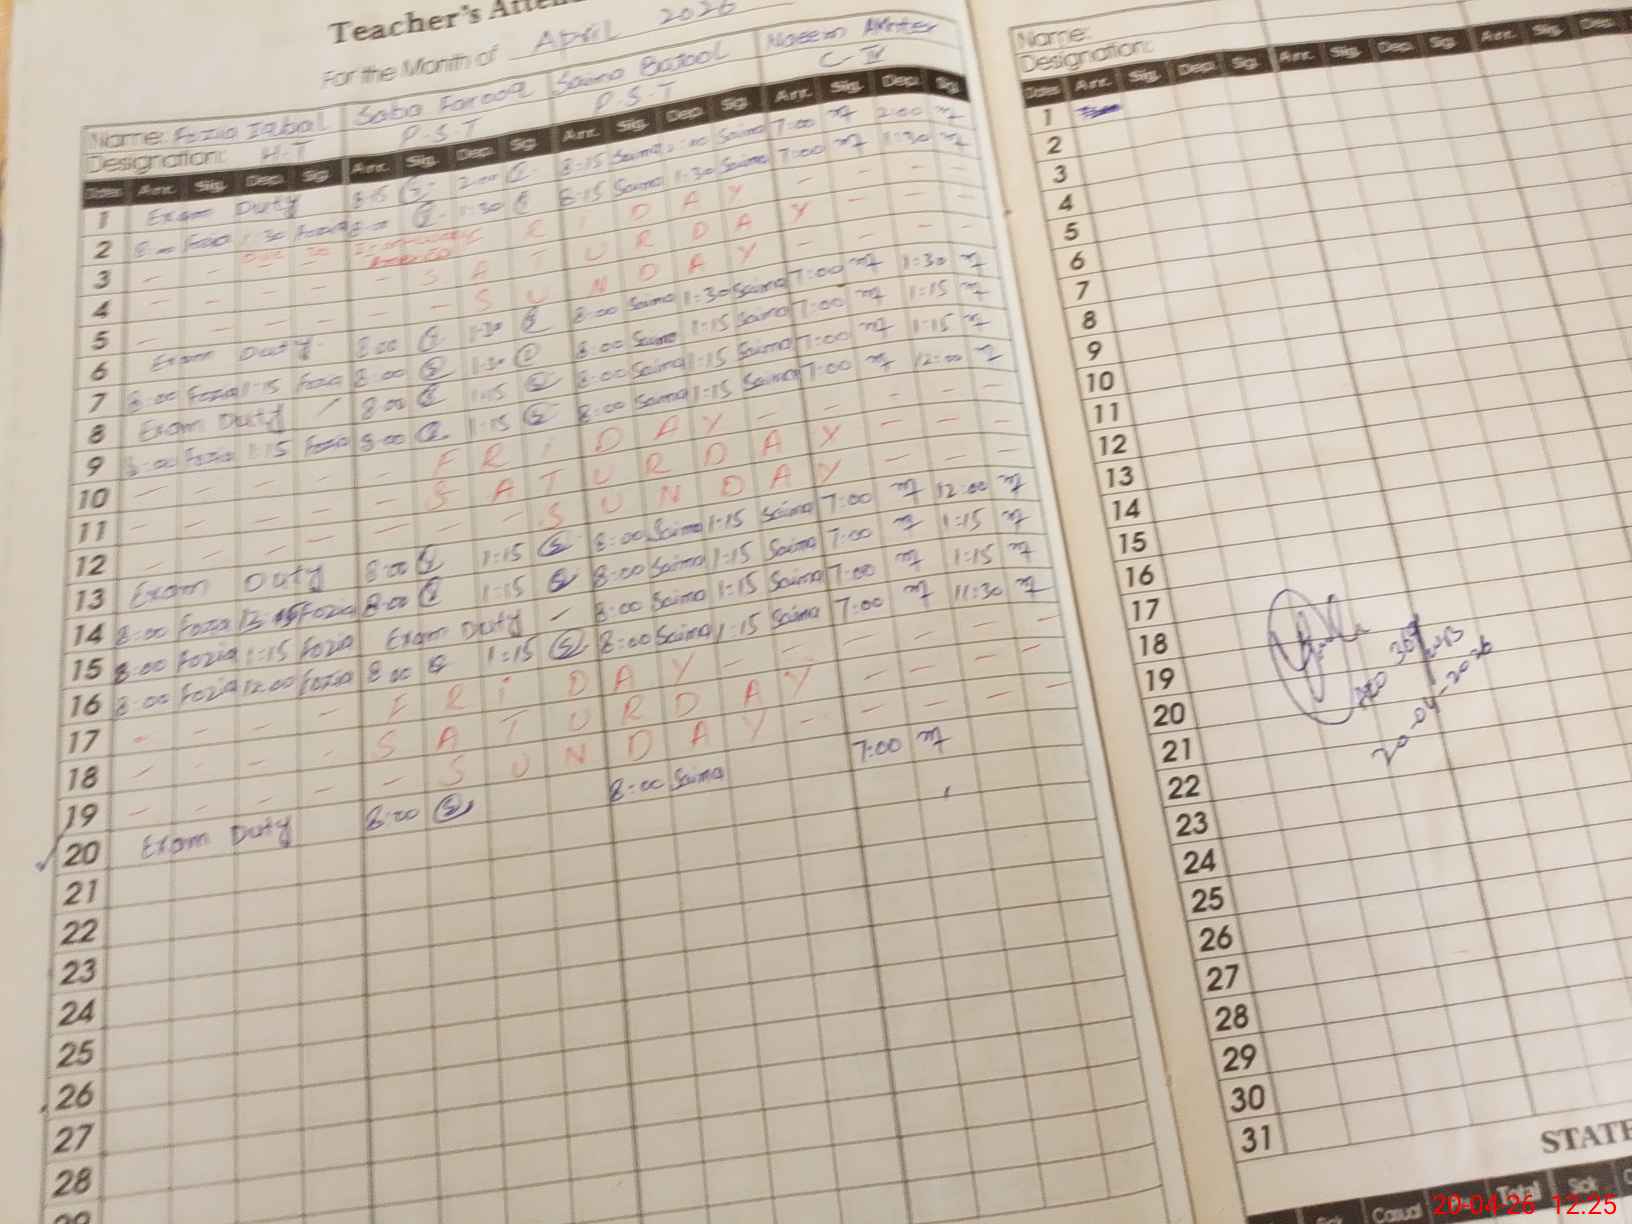 Teacher's Atten
For the Month of April 2026
Name: Fozia Iqbal Saba Farooq Saima Batool Naeem Akhter
Designation: H.T P.S.T P.S.T C IV
Dates Arr. Sig. Dep. Sig. Arr. Sig. Dep. Sig. Arr. Sig. Dep. Sig. Arr. Sig. Dep. Sig.
1 Exam Duty 8:15 2:00 8:15 Saima 2:00 Saima 7:00 2:00
2 8:00 Fozia 1:30 Fozia 8:00 1:30 8:15 Saima 1:30 Saima 7:00 1:30
3 - - - R I D A Y - - - -
4 - - - - - S A T U R D A Y - - -
5 - - - - - - S U N D A Y - - - -
6 Exam Duty. 8:00 1:30 8:00 Saima 1:30 Saima 7:00 1:30
7 8:00 Fozia 1:15 Fozia 8:00 1:30 8:00 Saima 1:15 Saima 7:00 1:15
8 Exam Duty 8:00 1:15 8:00 Saima 1:15 Saima 7:00 1:15
9 8:00 Fozia 1:15 Fozia 8:00 1:15 8:00 Saima 1:15 Saima 7:00 12:00
10 - - - - - F R I D A Y - - - - -
11 - - - - - S A T U R D A Y - - -
12 - - - - - - S U N D A Y - - -
13 Exam Duty 8:00 1:15 8:00 Saima 1:15 Saima 7:00 12:00
14 8:00 Fozia 12:45 Fozia 8:00 1:15 8:00 Saima 1:15 Saima 7:00 1:15
15 8:00 Fozia 1:15 Fozia Exam Duty - 8:00 Saima 1:15 Saima 7:00 1:15
16 8:00 Fozia 12:00 Fozia 8:00 1:15 8:00 Saima 1:15 Saima 7:00 11:30
17 - - - - F R I D A Y - - - - - -
18 - - - - S A T U R D A Y - - - -
19 - - - - - S U N D A Y - - - -
20 Exam Duty 8:00 8:00 Saima 7:00
21
22
23
24
25
26
27
28
29
Name:
Designation:
Dates Arr. Sig. Dep. Sig. Arr. Sig. Dep. Sig. Arr. Sig. Dep.
1
2
3
4
5
6
7
8
9
10
11
12
13
14
15
16
17
18
19
20
21
22
23
24
25
26
27
28
29
30
31
20-04-2026
STATE
Sick Casual Total Sick
20-04-26 12:25